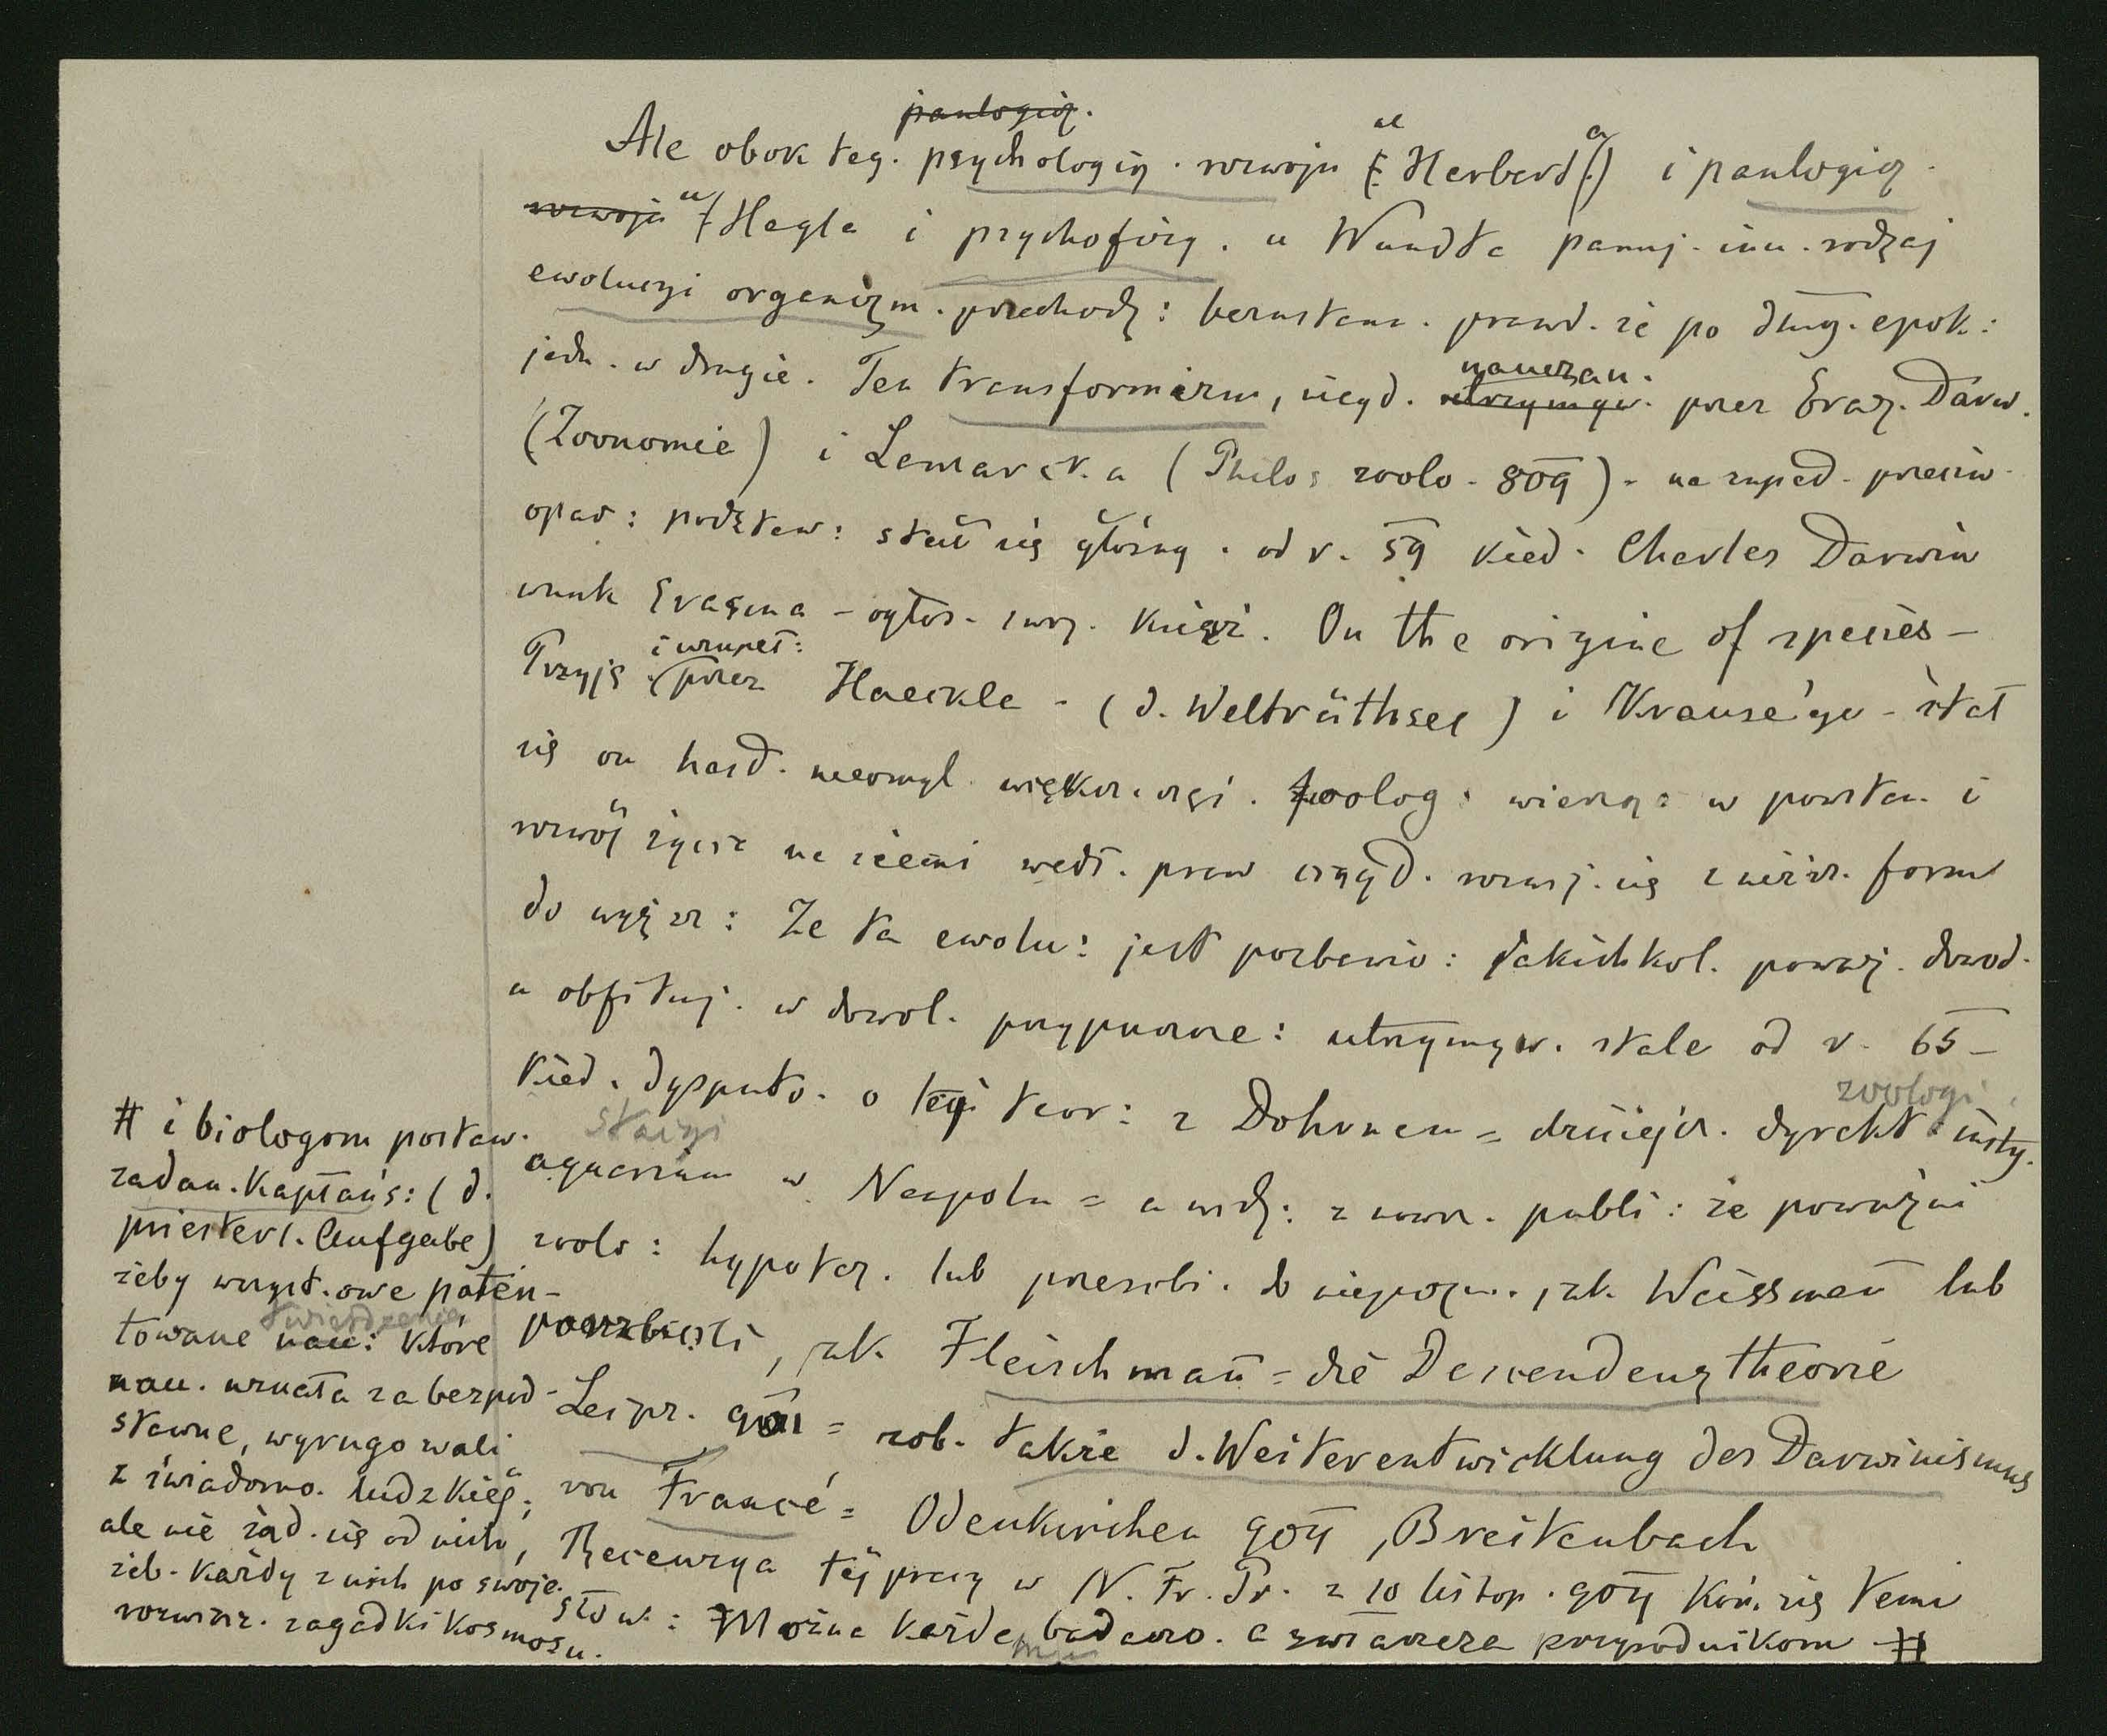 panlogicz.
Ale obok teg. psychologicz. rozwoju u Herberta i panlogicz.
rozwoju u Hegla i psychofizy. u Wundta panuj. inn. rodzaj
ewolucyi organizm. przechodz: bezustann. prawd. że po dług. epok:
jedn. w drugie. Ten transformizm, niegd. utrzymyw. nauczan. przez Erazm. Darw.
(Zoonomie) i Lamarck.a (Philos zoolo. 809). na zupeł. przeciw.
opar: podstaw: stał się głośny. od r. 59 kied. Charles Darwin
wnuk Erasma – ogłos. swoj. książ. On the origine of species –
Przyję. i uzupeł: przez Haeckla – (d. Welträthsel) i Krause'go – stał
się on hasł. nieomyl. większ. częś. zoolog: wierzą: w powstan. i
rozwój życia na ziemi wedł. praw rozwij. się z niższ. form
do wyższ: Że ta ewolu: jest pozbawio: jakichkol. poważ. dowod.
a obfituj. w dowol. przypuszcze: utrzymyw. stale od r. 65 –
kied. dysputo. o tej teor: z Dohrnem = dzisiejsz. dyrekt. zoologi. insty.
stacyi aquarium w Neapolu = a widz: z now. publi: że poważni
zoolo: hypotez. lub przerobi. do niepozn. jak Weissmañ lub
porzucili, jak Fleischmañ = die Descendenztheorie
Leipz. 901 = zob. także d. Weiterentwicklung des Darwinismus
von Francé = Odenkirchen 904, Breitenbach
Recenzya tej pracy w N. Fr. Pr. z 10 listop. 904 koń. się temi
słow: Można każdemu badaczo. a zwłaszcza przyrodnikom #
# i biologom postaw.
zadan. kapłańs: (d.
priesterl. Aufgabe)
żeby wszyst. owe paten-
towane nau: twierdzenia które
nau. uznała za bezpod-
stawne, wyrugowali
z świadomo. ludzkiej;
ale nie żąd. się od nich,
żeb. każdy z nich po swoje.
rozwiąz. zagadki kosmosu.